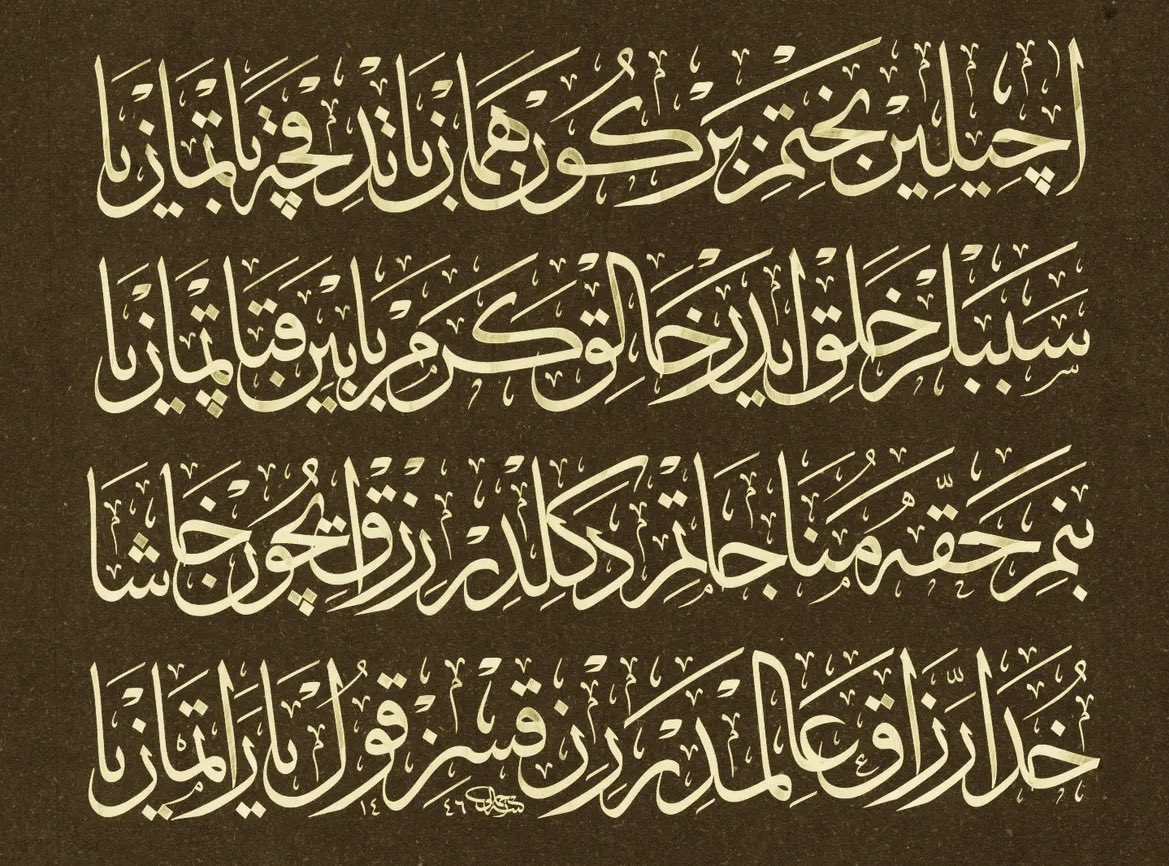 اچيلير بختمز بر كون همان باتدقچه باتماز يا
سببلر خلق ايدر خالق كرم بابين قپاتماز يا
بنم حقّه مناجاتم دكلدر رزق ايچون حاشا
خدا رزّاق عالمدر رزقسز قول ياراتماز يا
١٤٤٦